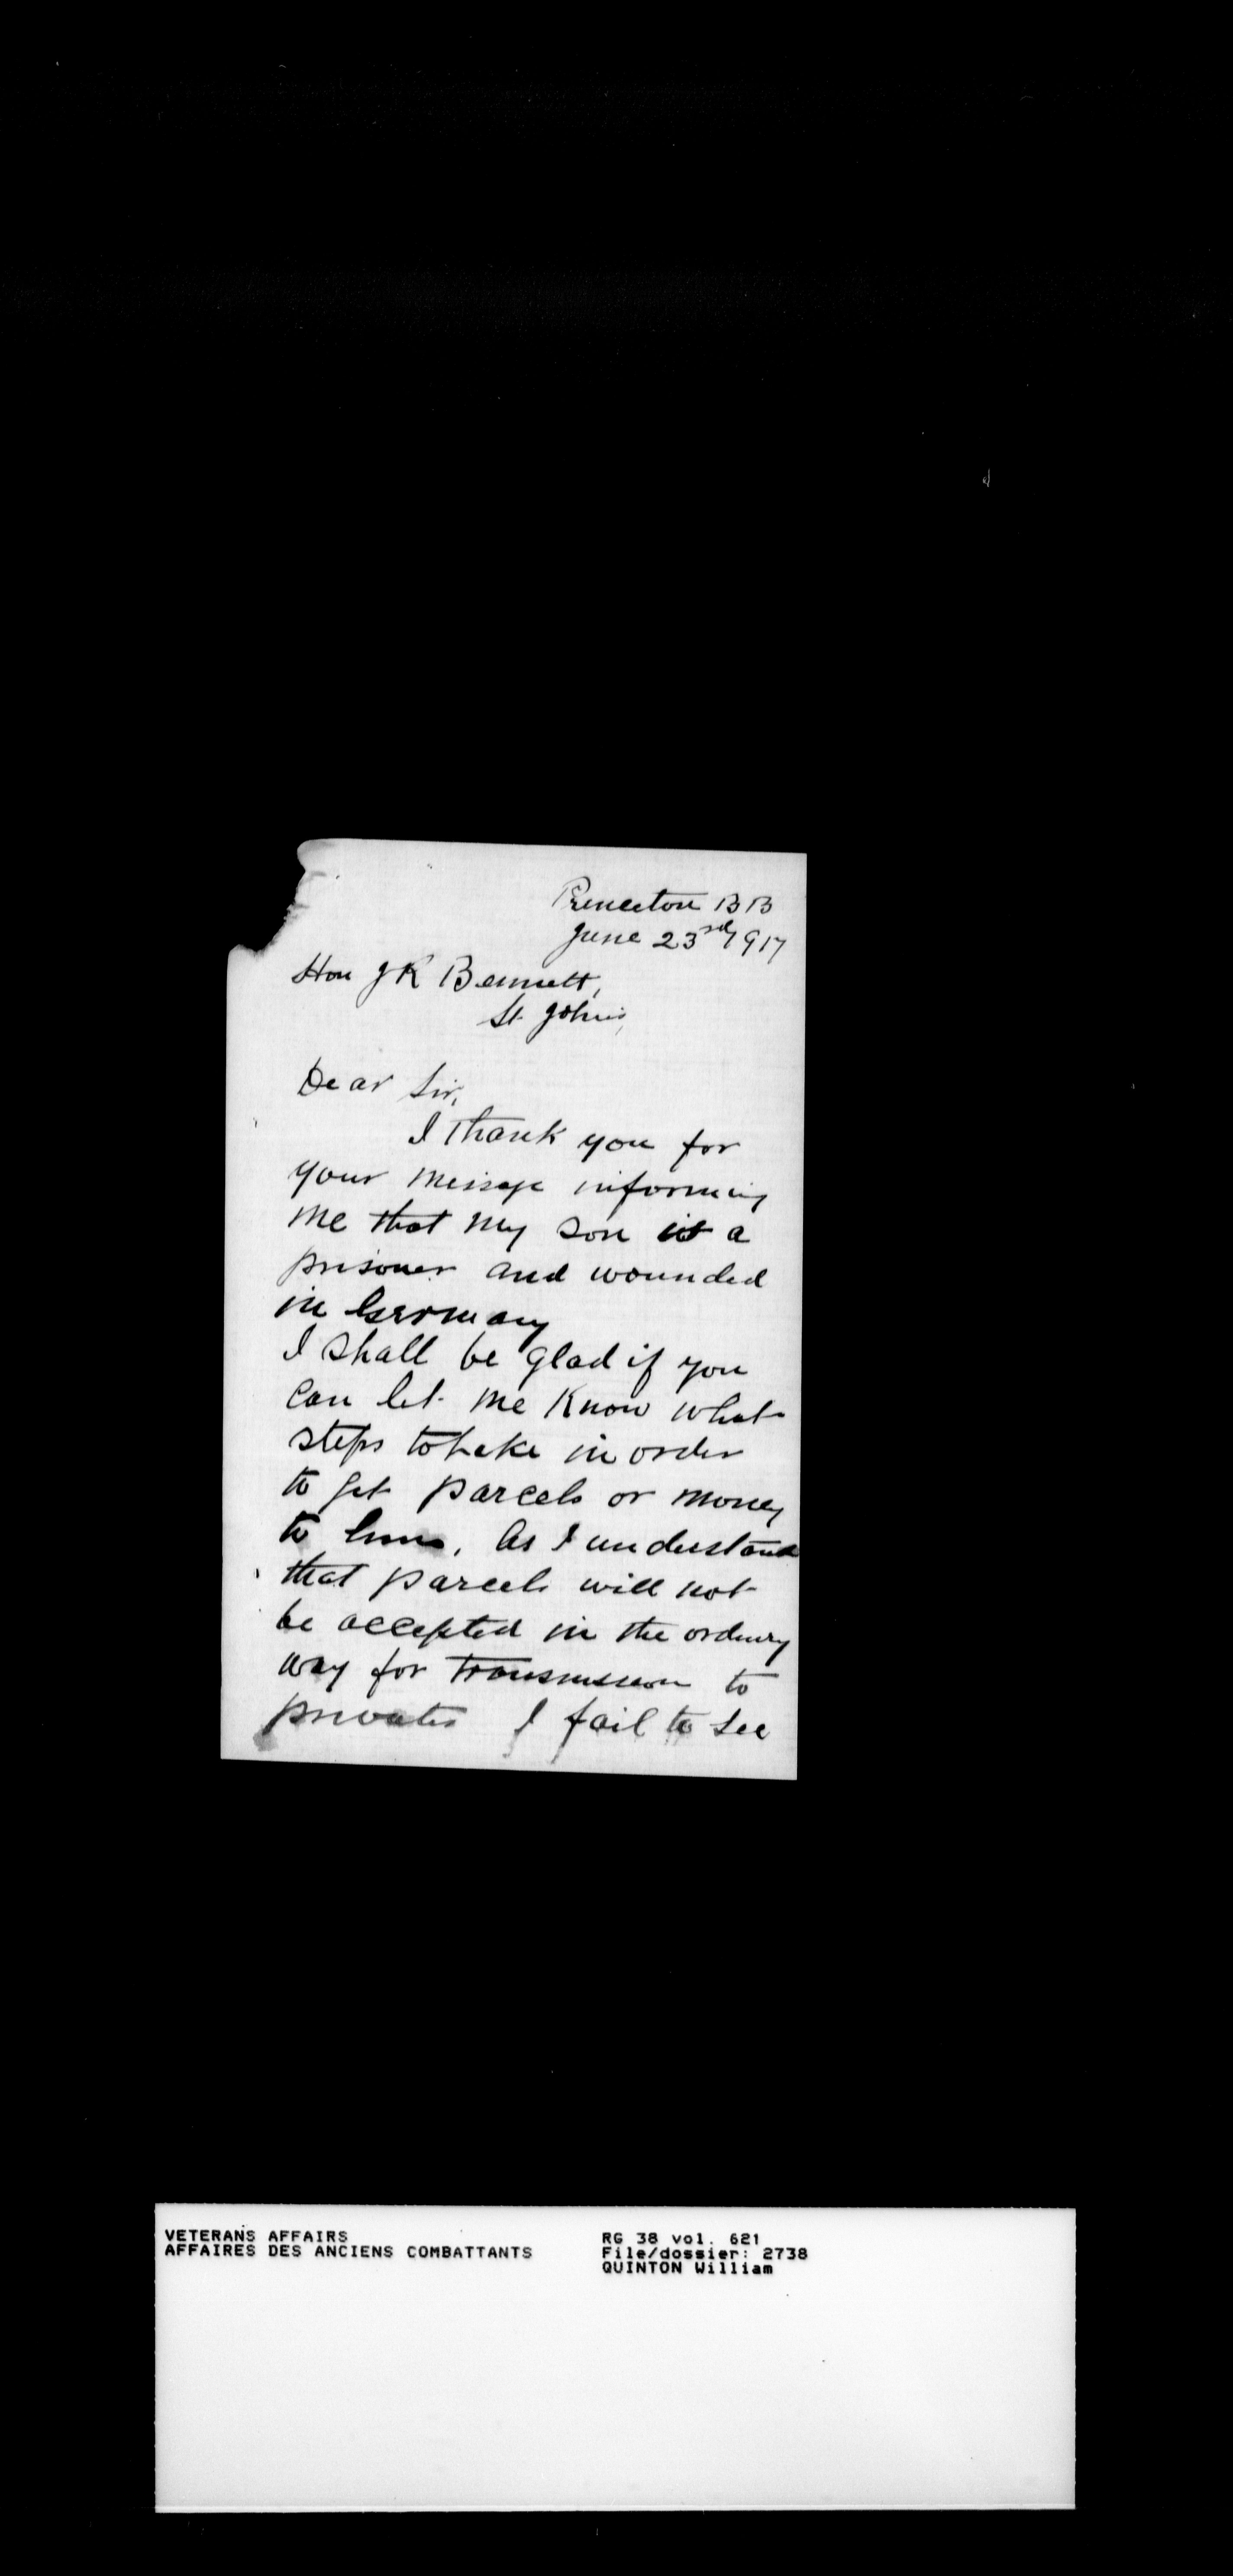 Princeton BB
June 23rd 1917
Hon J R Bennett,
St. John's,
Dear Sir,
I thank you for
your message informing
me that my son is a
prisoner and wounded
in Germany
I shall be glad if you
can let me know what
steps to take in order
to get parcels or money
to him. As I understand
that parcels will not
be accepted in the ordinary
way for transmission to
privates I fail to see
VETERANS AFFAIRS
AFFAIRES DES ANCIENS COMBATTANTS
RG 38 vol. 621
File/dossier: 2738
QUINTON William